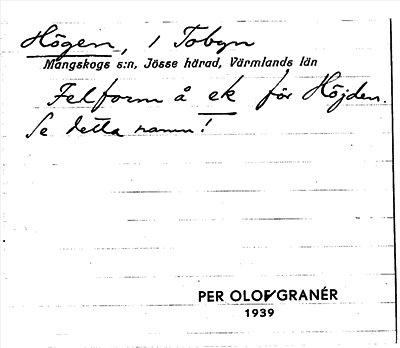 Högen, i Tobyn
Mangskogs s:n, Jösse härad, Värmlands län
Felform å ek för Höjden.
Se detta namn!
PER OLOF GRANÉR
1939